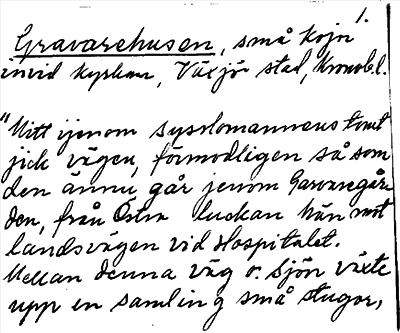 1.
Gravarehusen, små kojor
invid kyrkan, Växjö stad, Kronob.l.
"Mitt ijenom sysslomannens tomt
jick vägen, förmodligen så som
den ännu går jenom Garvaregår-
den, från Östra luckan hän mot
landsvägen vid Hospitalet.
Mellan denna väg o. sjön växte
upp en samling små stugor,